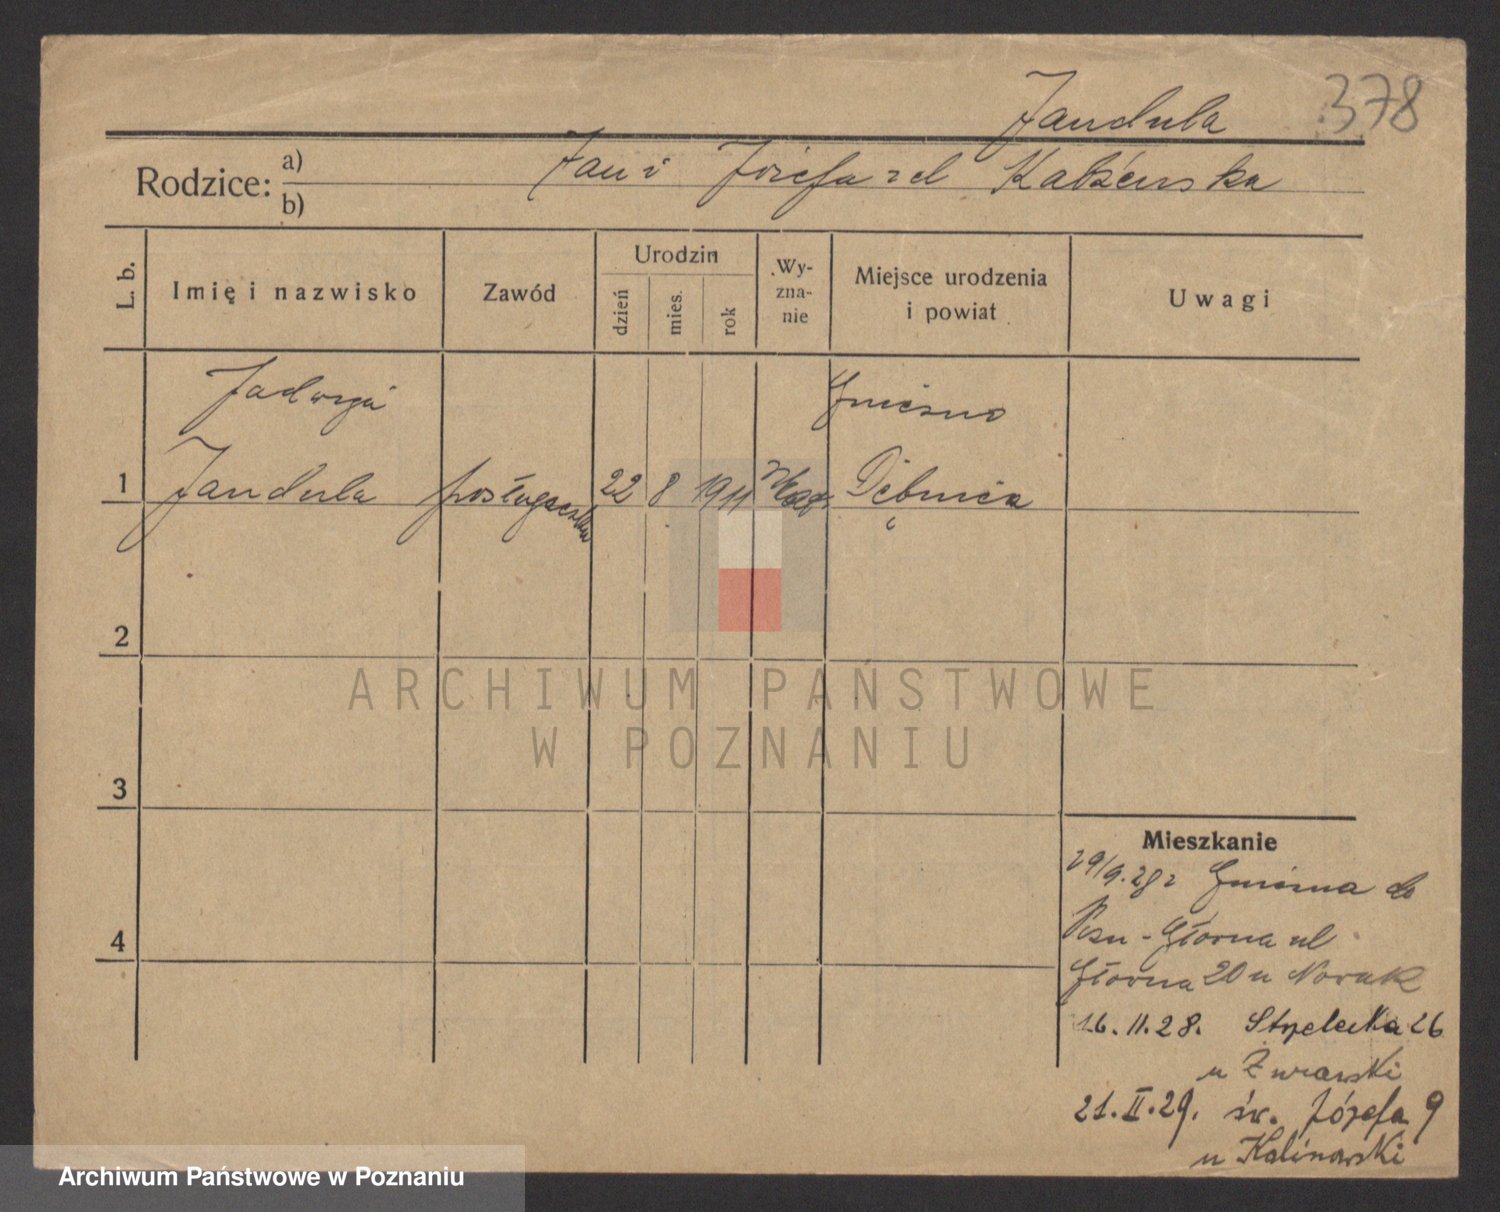 Jandula 378
Rodzice: a) Jan i Józefa zd
b)
L. b.
Imię i nazwisko
Zawód
Urodzin
dzień
mies.
rok
Wy-
zna-
nie
Miejsce urodzenia
i powiat
Uwagi
Jadwiga Gniezno
1 Jandula posługaczka 22 8 1911 Dębnica
2
3
4
Mieszkanie
29/9.28 z Gniezna do
Pozn - Głowna ul
Głowna 20 u Nowak
16. 11. 28. Strzelecka 26
u Żurawski
21. II. 29. św. Józefa 9
u Kalinowski
ARCHIWUM PAŃSTWOWE
W POZNANIU
Archiwum Państwowe w Poznaniu